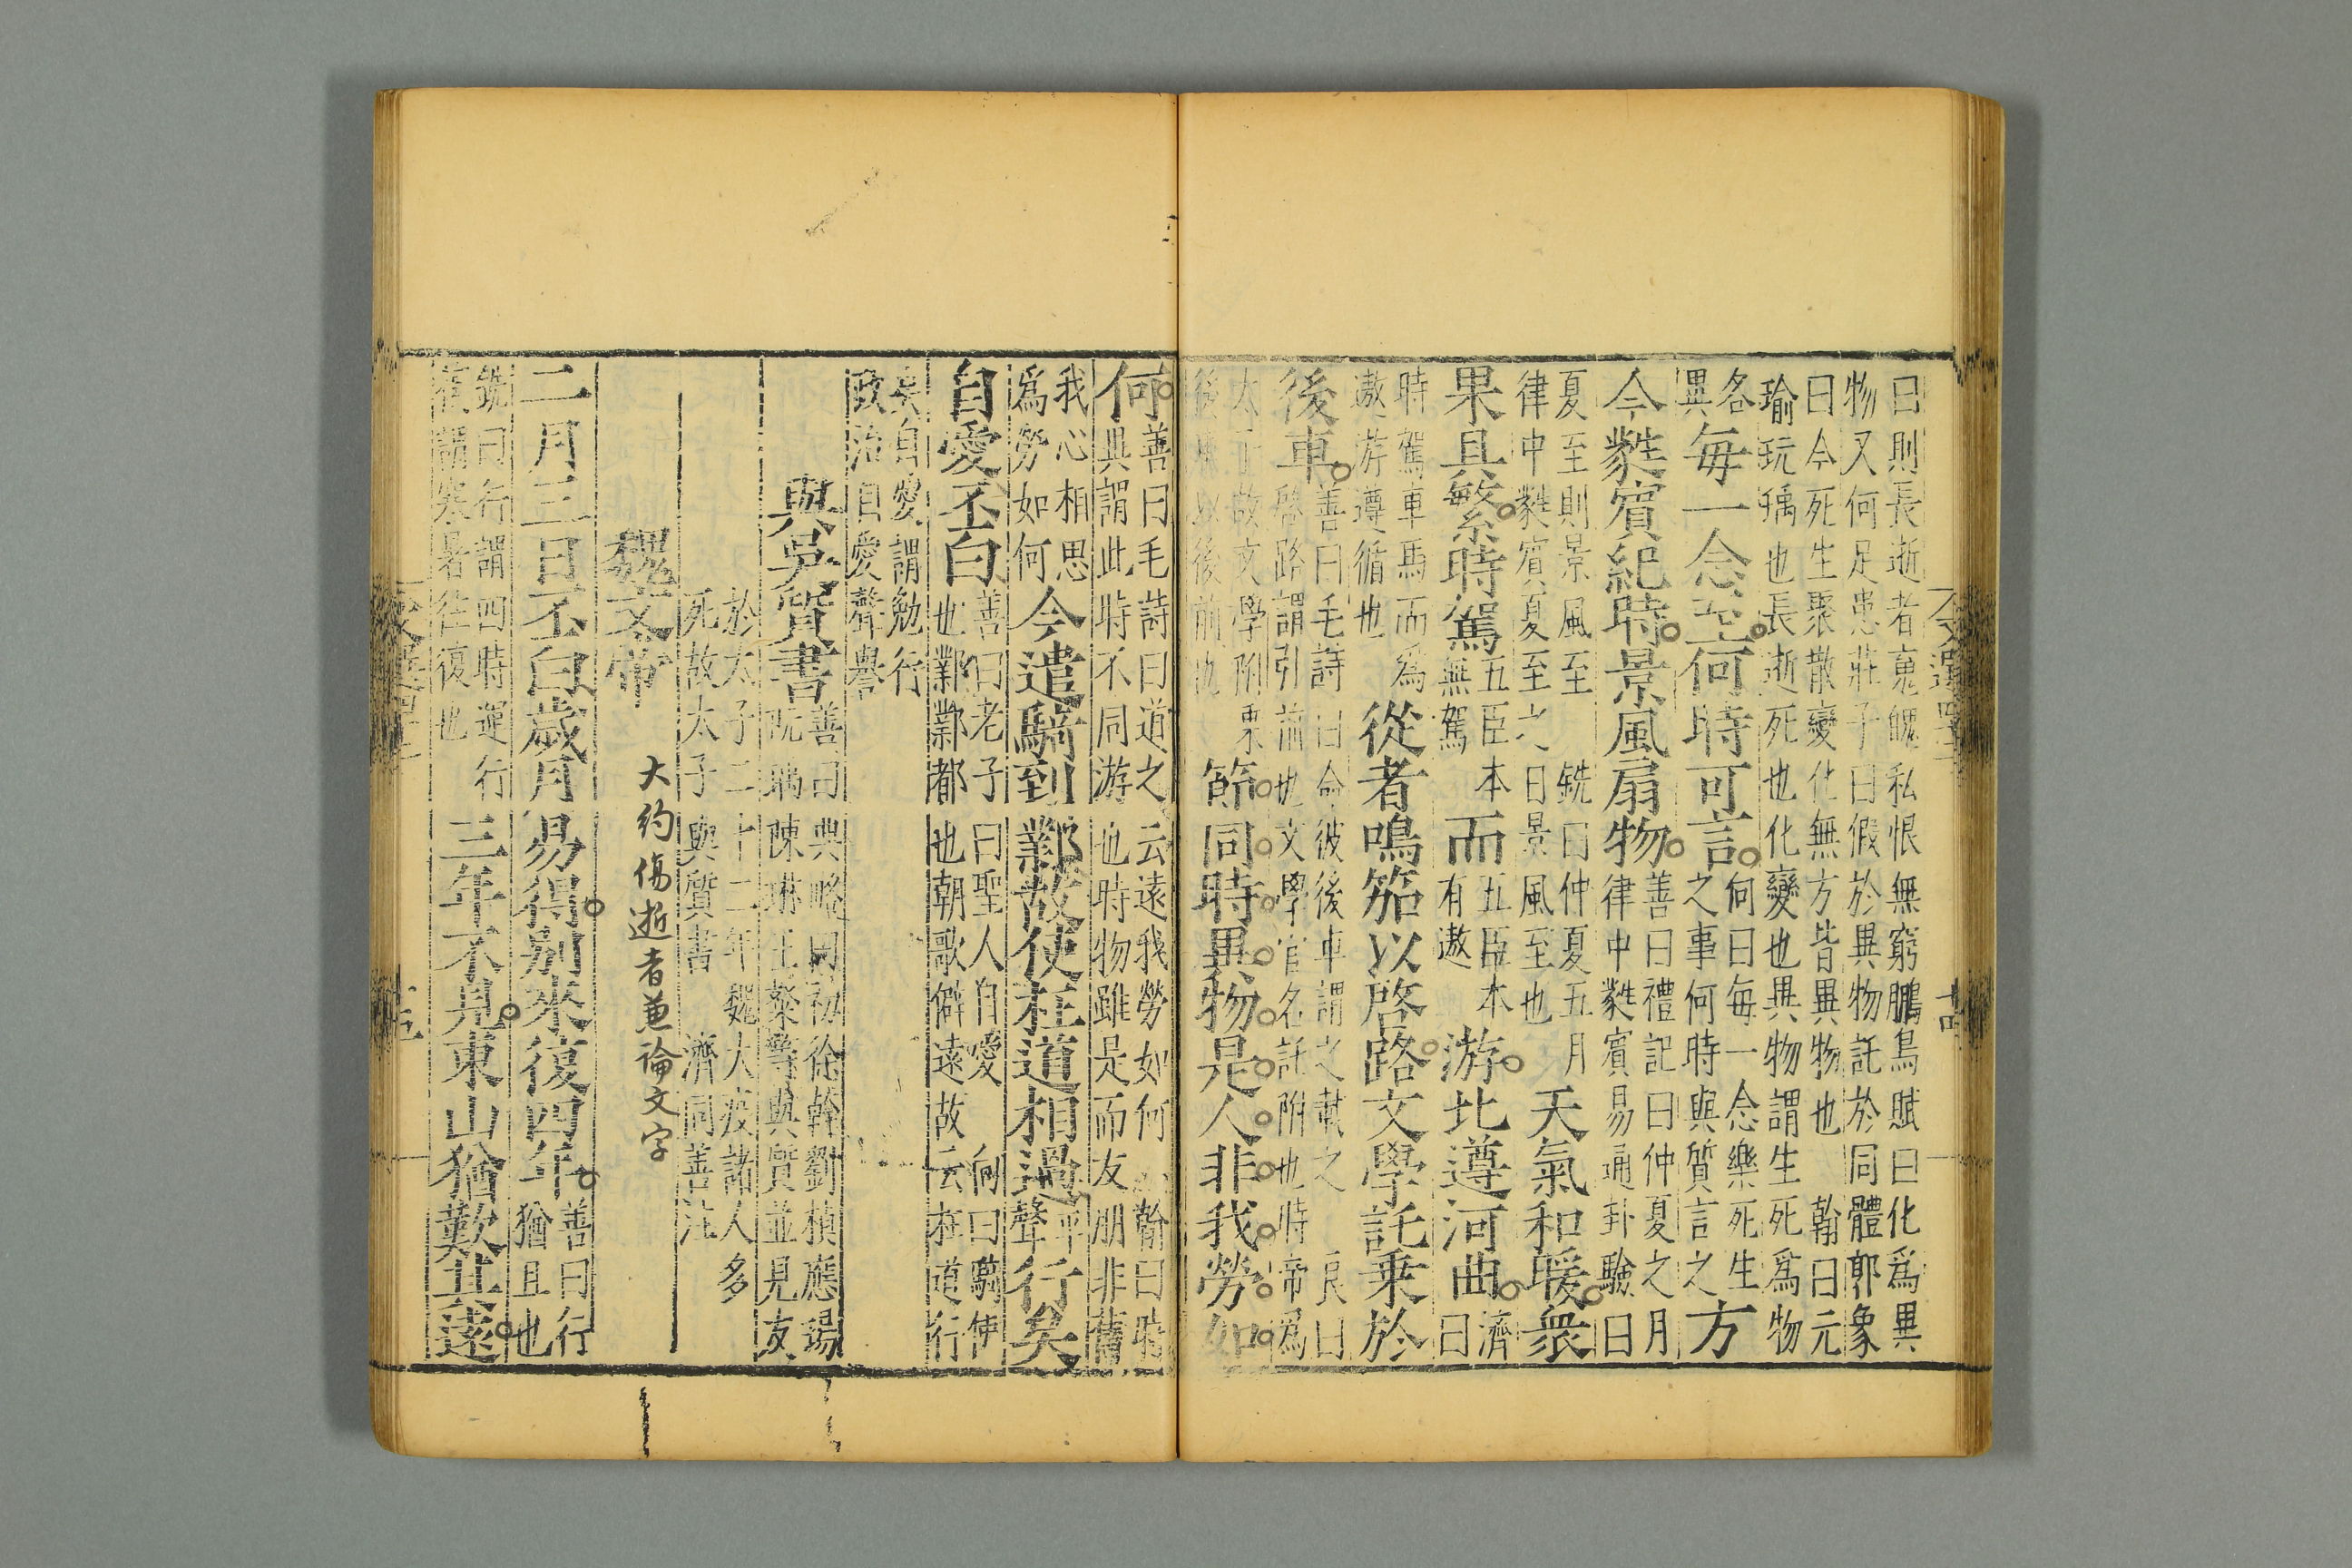 曰則長逝者䰟魄私恨無窮鵩鳥賦曰化爲異
物又何足患莊子曰假於異物託於同體郭象
曰今死生聚散變化無方皆異物也 翰曰元
瑜阮瑀也長逝死也化變也異物謂生死爲物
各
異
每一念至何時可言
何曰每一念樂死生
之事何時與質言之
方
今蕤賓紀時景風扇物
善曰禮記曰仲夏之月
律中蕤賓易通卦驗曰
夏至則景風至 銑曰仲夏五月
律中蕤賓夏至之日景風至也
天氣和暖衆
果具繁時駕
五臣本
無駕
而
五臣本
有遨
游北遵河曲
濟
曰
時駕車馬而爲
遨游遵循也
從者鳴笳以啓路文學託乗於
後車
善曰毛詩曰命彼後車謂之載之 良曰
啓路謂引前也文學官名託附也時帝爲
太子故文學附乗
後車以後前也
節同時異物是人非我勞如
何
善曰毛詩曰道之云遠我勞如何 翰曰時
異謂此時不同游也時物雖是而友朋非舊
我心相思
爲勞如何
今遣騎到鄴故使枉道相過
平
聲
行矣
自愛丕白
善曰老子曰聖人自愛 向曰騎使
也鄴鄴都也朝歌僻遠故云枉道行
矣自愛謂勉行
政治自愛聲譽
與吳質書
善曰典略曰初徐幹劉楨應瑒
阮瑀陳琳王粲等與質並見友
於太子二十二年魏大疫諸人多
死故太子與質書 濟同善注
魏文帝
大約傷逝者兼論文字
二月三日丕白歲月易得别來復四年
善曰行
猶且也
銑曰行謂四時運行
復謂寒暑往復也
三年不見東山猶歎其遠